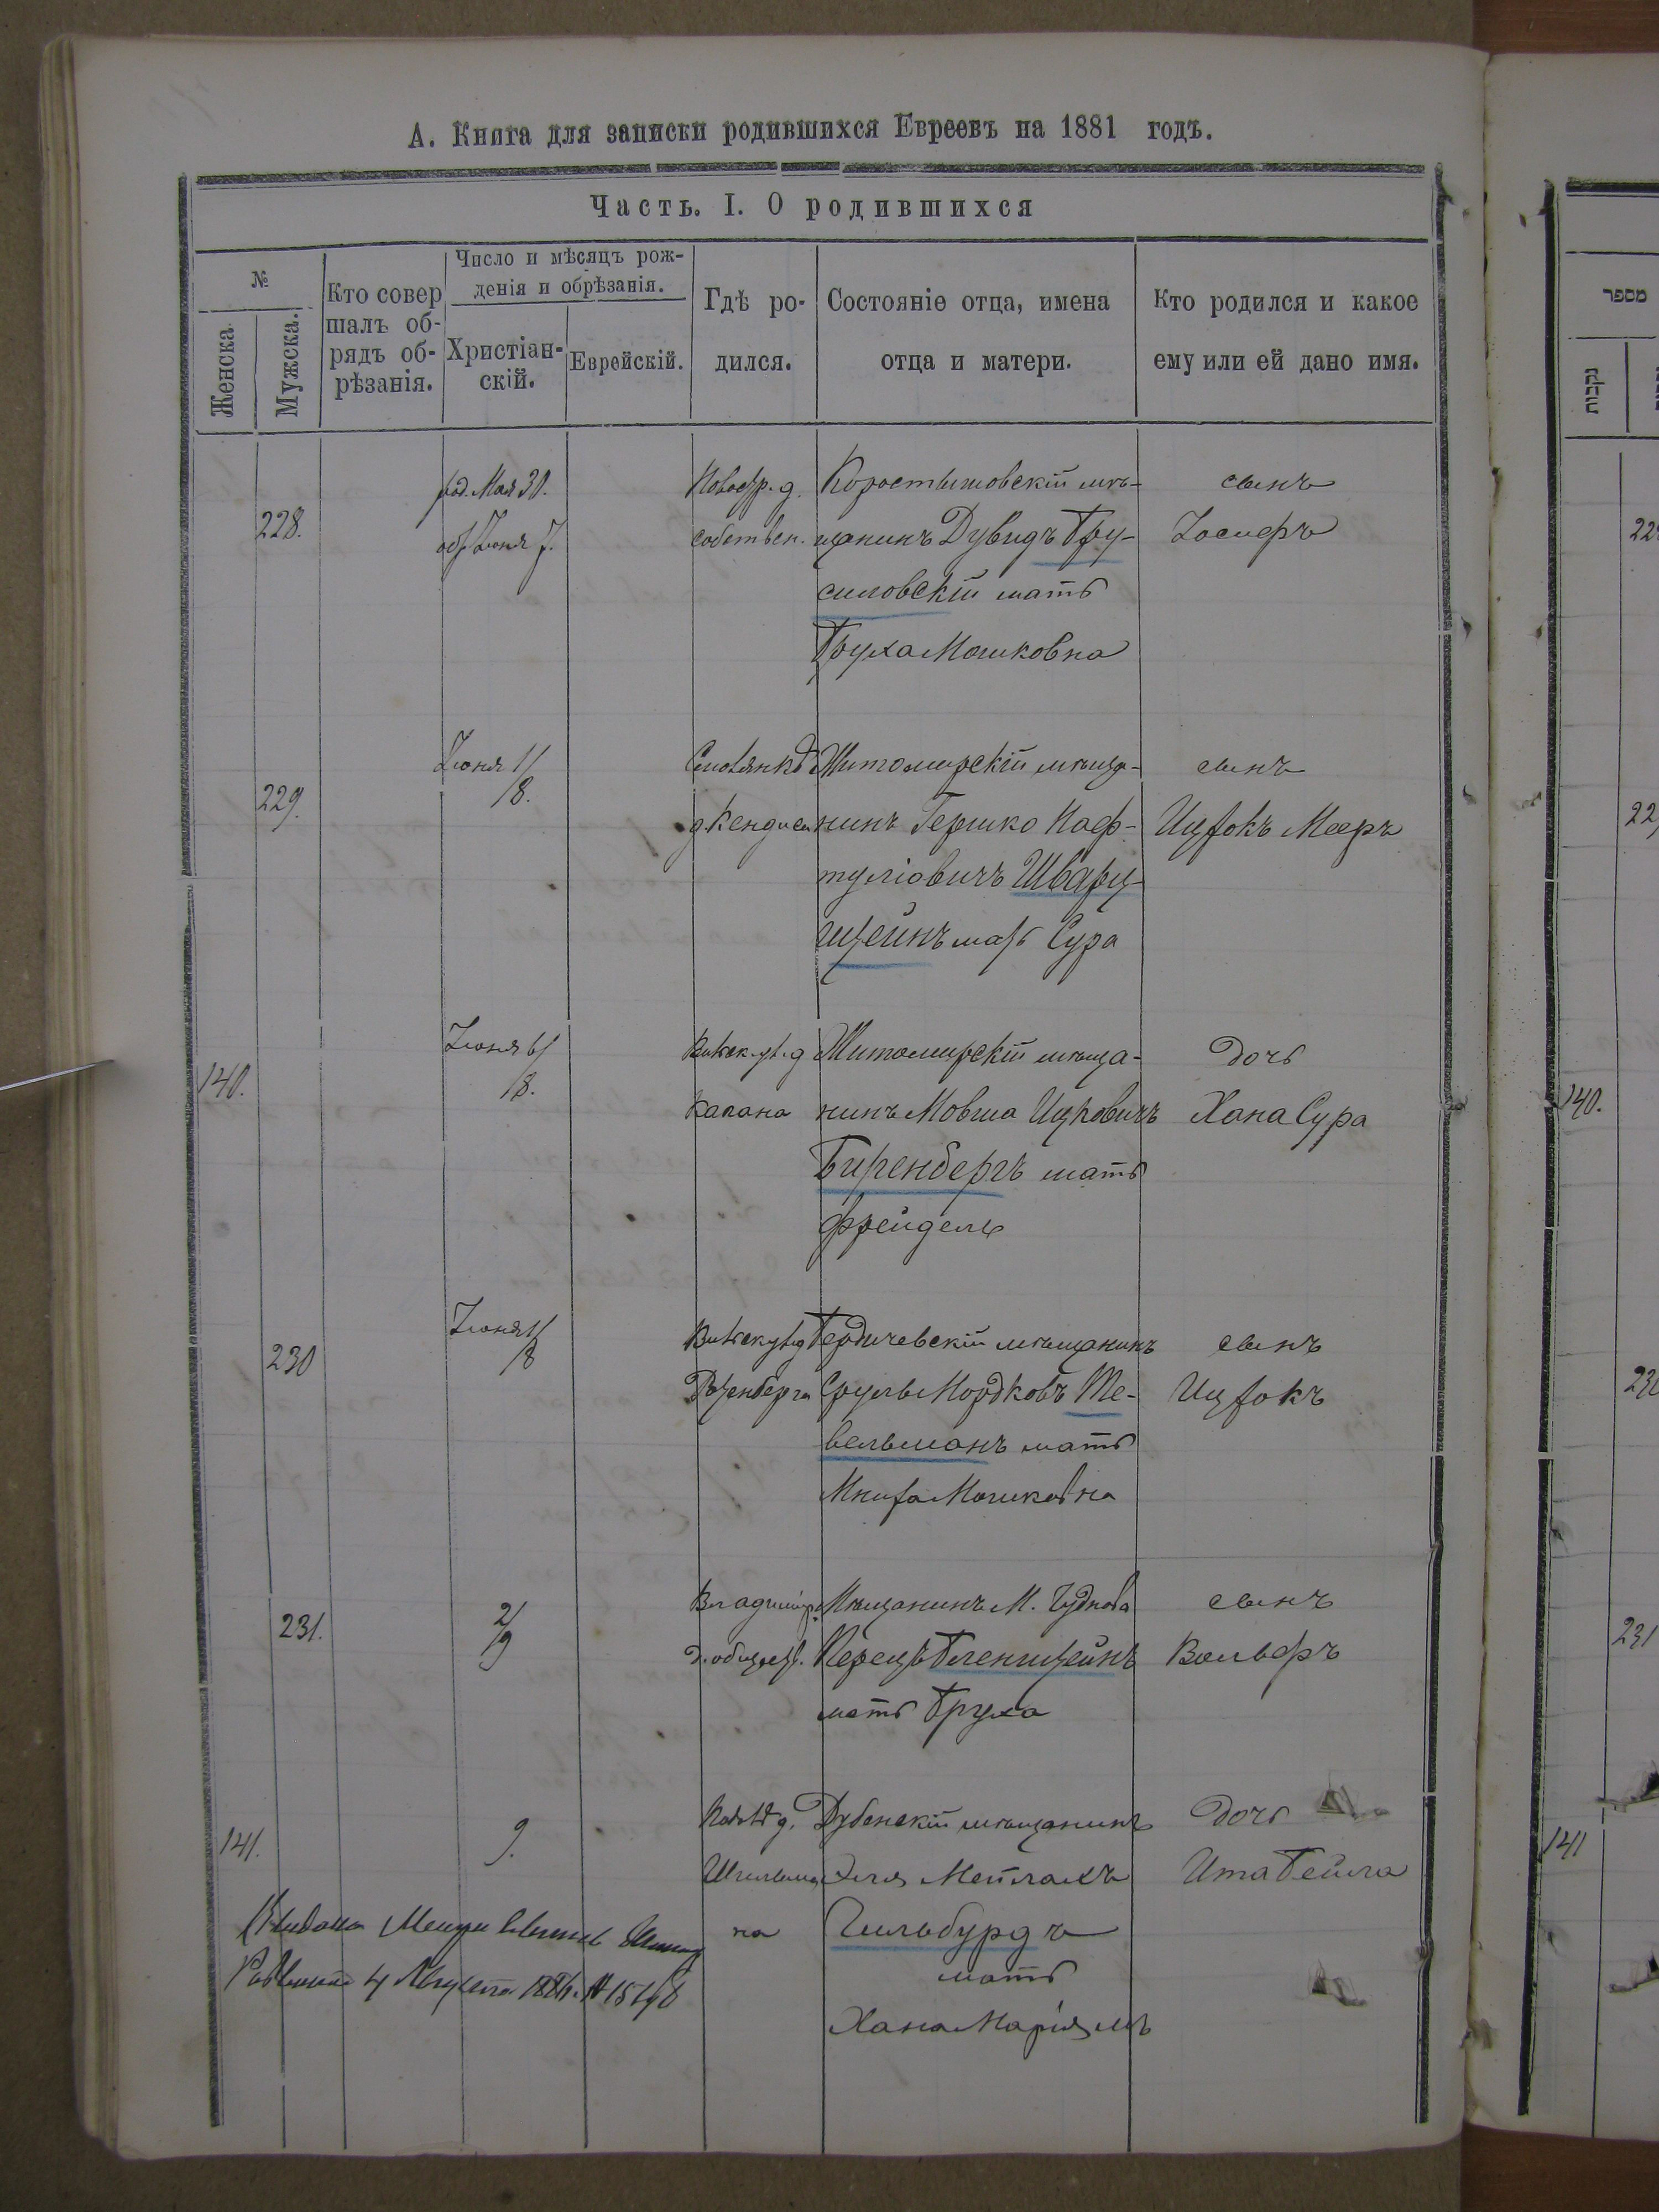 А. Книга для записки родившихся Евреевъ на 1881 годъ.
Часть. I. О родившихся
№
Женска.
Мужска.
Кто совер
шалъ об-
рядъ об-
рѣзанія.
Число и мѣсяцъ рож-
денія и обрѣзанія.
Христіан-
скій.
Еврейскій.
Гдѣ ро-
дился.
Состояніе отца, имена
отца и матери.
Кто родился и какое
ему или ей дано имя.
מספר
נקבות
228.
род. Мая 30.
обр Іюня 7.
собствен.
Коростышовскій мѣ-
щанинъ Дувидъ Бру-
силовскій мать
Бруха Мошковна
сынъ
Іосифъ
229.
Іюня 1/
/8.
Житомирскій мѣща-
нинъ Гершко Наф-
туліовичъ Шварц-
штейнъ мать Сура
сынъ
Ицхокъ Мееръ
140.
Іюня
/8.
Кагана
Житомирскій мѣща-
нинъ Мовша Ицковичъ
Биренбергъ мать
Фрейдель
дочь
Хана Сура
230
Іюня 1/
/8
Розенберга
Бердичевскій мѣщанинъ
Сруль Мордковъ Те-
вельманъ мать
Мошковна
сынъ
Ицхокъ
231.
2/
/9
Владимір.
д. общест.
Мѣщанинъ М. Чуднова
Перецъ
мать Бруха
сынъ
Вольфъ
141.
9.
на
Дубенскій мѣщанинъ
Эля Мейлахъ
Гильбурдъ
мать
Хана Маріямъ
дочь
Ита Бейла
4 Августа
140.
231
141